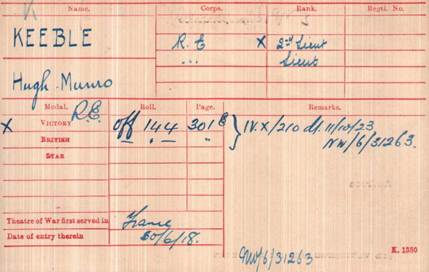 Name. Corps. Rank. Regtl. No.
KEEBLE R.E X 2nd Lieut
" Lieut
Hugh Munro
Medal. Roll. Page. Remarks.
X VICTORY R.E. off 144 301B IV.X/210 dt. 11/10/23
BRITISH " " NW/6/31263.
STAR
Theatre of War first served in France
Date of entry therein 20/6/18.
NW/6/31263
K. 1380